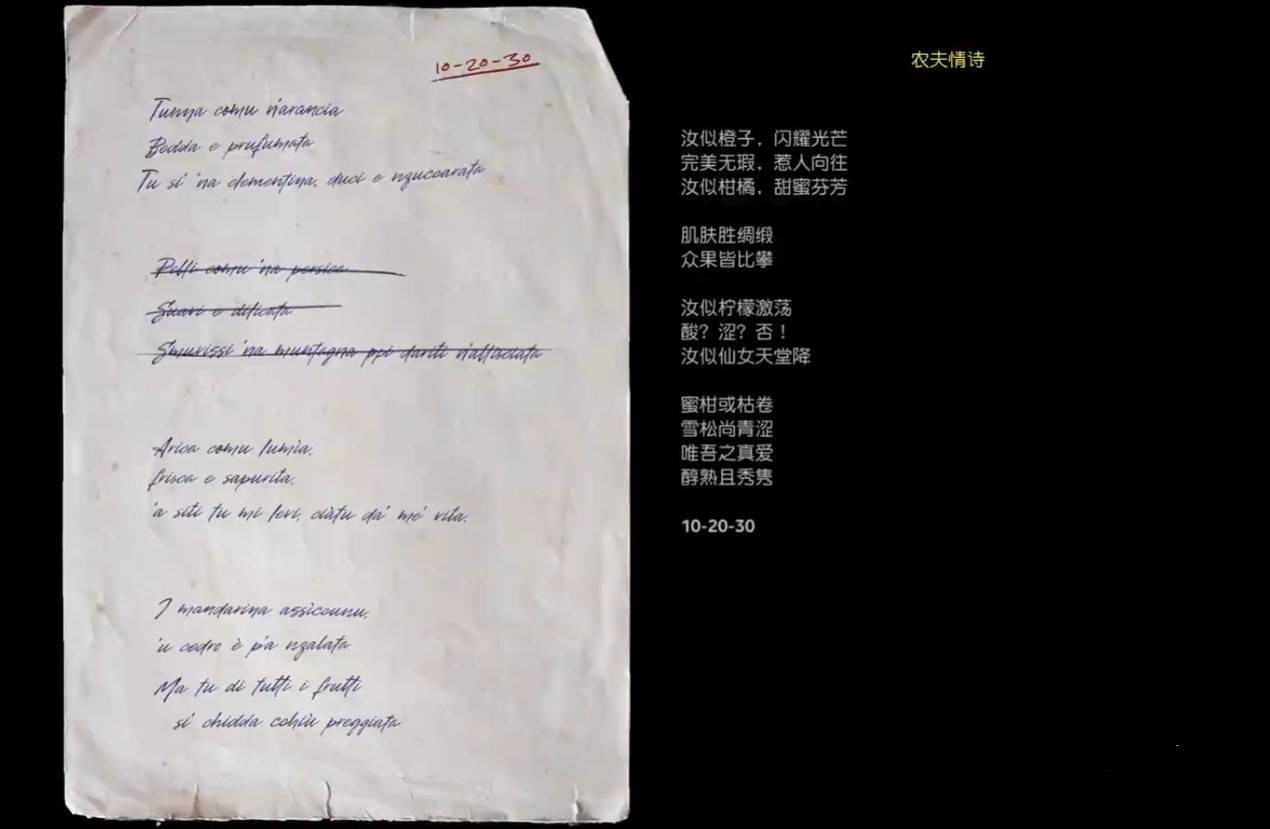 10-20-30
Tunna comu n'arancia
Bedda e prufumata
Tu si 'na clementina, duci e nzuccarata
Pelli comu 'na persica
Suavi e dilicata
Smurissi 'na muntagna ppi dariti n'allisciata
Arica comu lumìa,
frisca e sapurita,
'a siti tu mi levi, ciàtu da' me' vita.
I mandarina assiccunu,
'u cedro è p'a nzalata
Ma tu di tutti i frutti
si' chidda cchiù preggiata
农夫情诗
汝似橙子，闪耀光芒
完美无瑕，惹人向往
汝似柑橘，甜蜜芬芳
肌肤胜绸缎
众果皆比攀
汝似柠檬激荡
酸？涩？否！
汝似仙女天堂降
蜜柑或枯卷
雪松尚青涩
唯吾之真爱
醇熟且秀隽
10-20-30